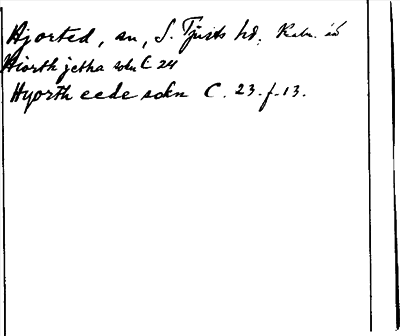 Hjorted, sn, S. Tjusts hd; Kalm. län
Hiorthjetha sokn C 24
Hyorth eede sokn C. 23. f. 13.